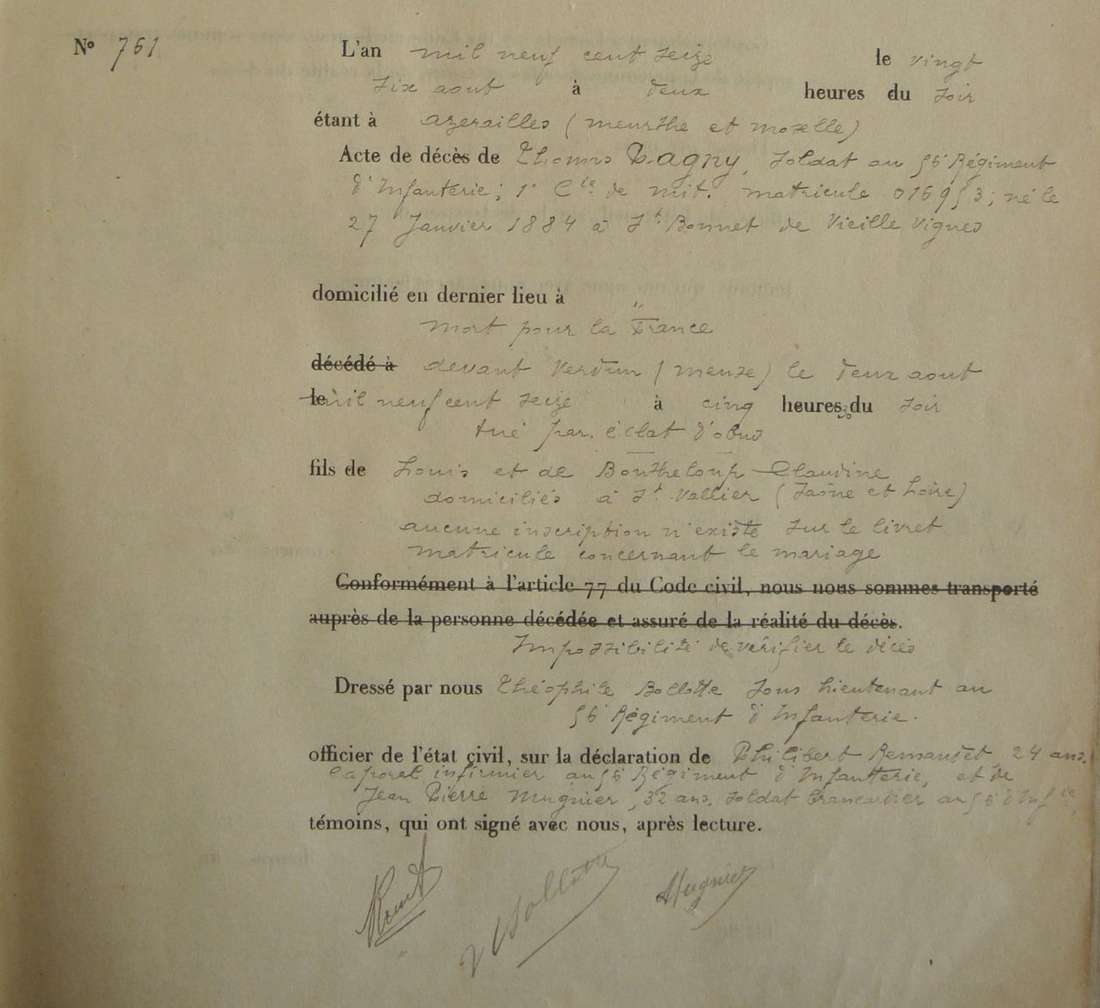 N° 761
L'an mil neuf cent seize le vingt
six aout à deux heures du soir
étant à azerailles (meurthe et moselle)
Acte de décès de Thomas Dagny, soldat au 56 Régiment
d'Infanterie; 1° Cie de mit. matricule 016953; né le
27 Janvier 1884 à St Bonnet de Vieille Vignes
domicilié en dernier lieu à "
mort pour la France
décédé à devant Verdun (meuse) le deux aout
le mil neuf cent seize à cinq heures du soir
tué par éclat d'obus
fils de Louis et de Boutheloup Claudine
domiciliés à St Vallier (Saône et Loire)
aucune inscription n'existe sur le livret
matricule concernant le mariage
Conformément à l'article 77 du Code civil, nous nous sommes transporté
auprès de la personne décédée et assuré de la réalité du décès.
Impossibilité de vérifier le décès
Dressé par nous Théophile Bollotte sous Lieutenant au
56 Régiment d'Infanterie.
officier de l'état civil, sur la déclaration de Philibert 24 ans,
Caporal infirmier au 56 Régiment d'Infanterie, et de
Jean Pierre Mugnier, 32 ans, soldat brancardier au 56 d'Infie
témoins, qui ont signé avec nous, après lecture.
Mugnier